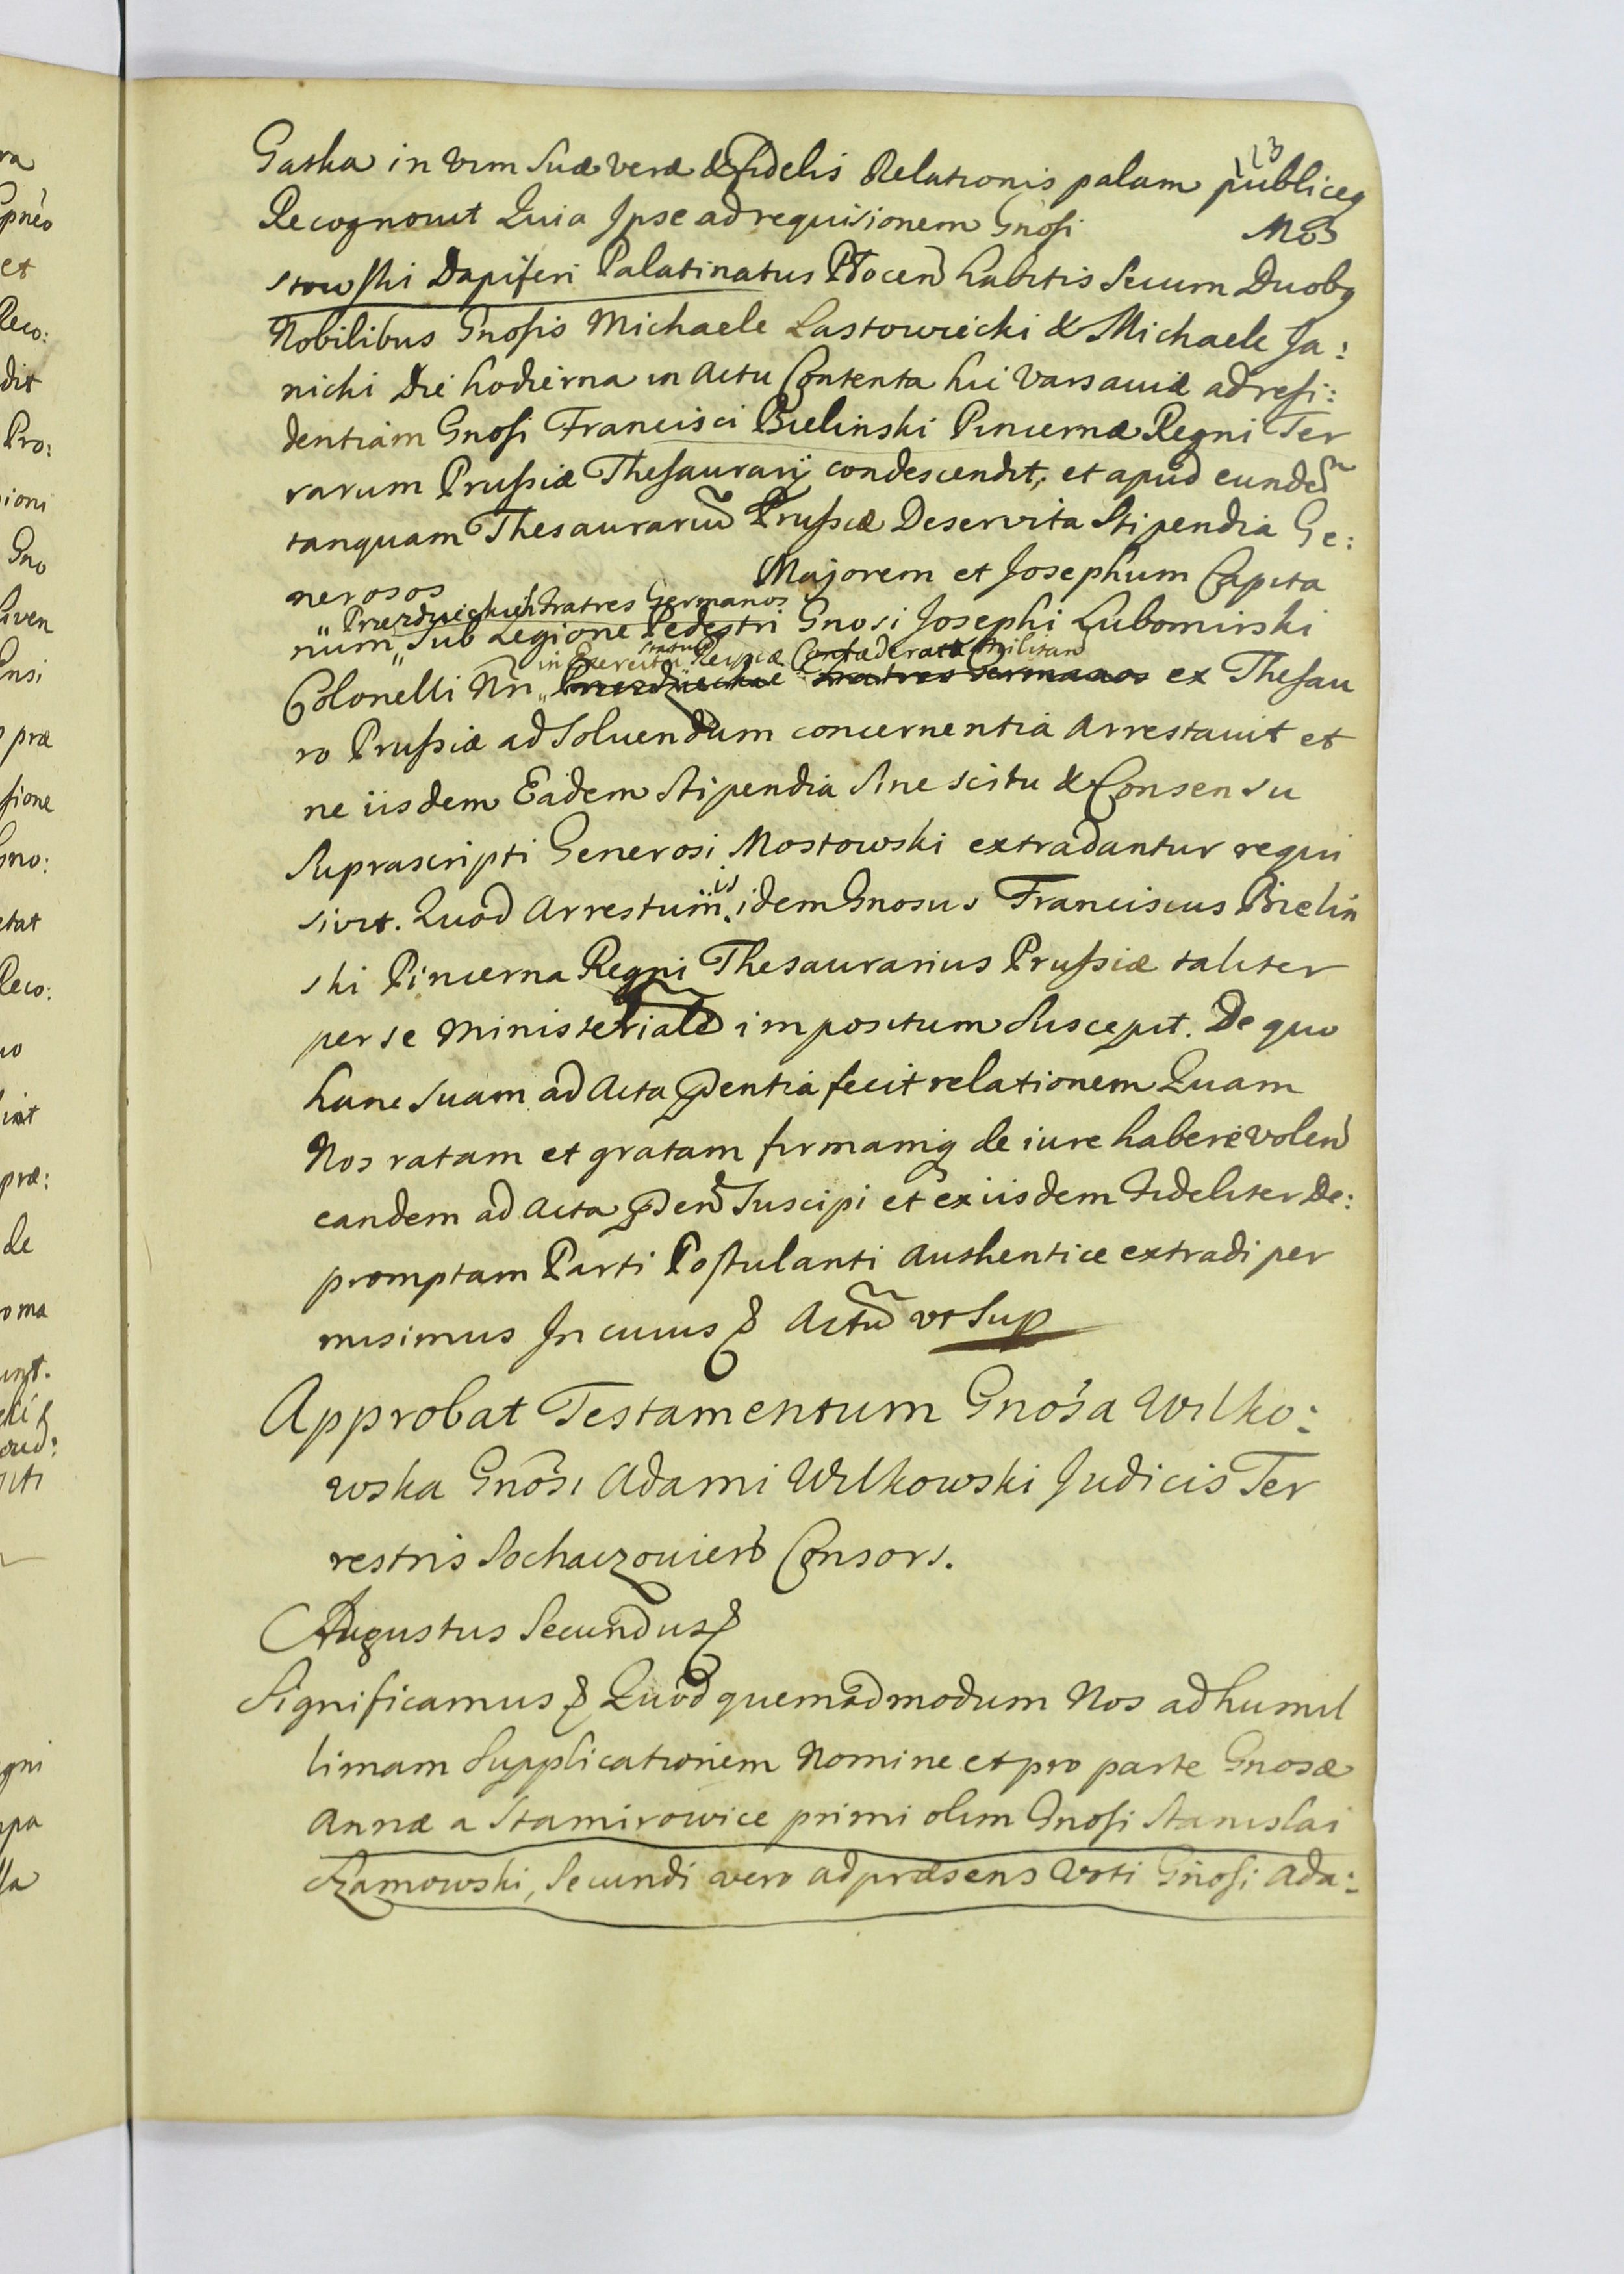 123
Gaska in vim suæ veræ & fidelis Relationis palam publiceq
Recognovit Quia Ipse ad requisionem Gnosi Mo
stowski Dapiferi Palatinatus Plocen habitis secum Duobq
Nobilibus Gnosis Michaele Lastowiecki & Michaele Ja:
nicki Die hodierna in Actu Contenta hic Varsaviæ ad resi:
dentiam Gnosi Francisci Bielinski Pincernæ Regni Ter
rarum Prussiæ Thesaurarÿ condescendit, et apud eundem
tanquam Thesaurariu Prussiæ Deservita Stipendia Ge:
nerosos Majorem et Josephum Capita
" Przezdzieckich Fratres Germanos
num " sub Legione Pedestri Gnosi Josephi Lubomirski
in Exercitu Status Reipcæ Confæderatæ Militan
Colonelli Nri " Przezdzieckie Fratres Germanos ex Thesau
ro Prussiæ ad Solvendum concernentia Arrestavit et
ne iisdem Eadem Stipendia Sine scitu & Consensu
Suprascripti Generosi Mostowski extradantur requi
sivit. Quod Arrestum is idem Gnosus Franciscus Bielin
ski Pincerna Regni Thesaurarius Prussiæ taliter
per se Ministeriale impositum Suscepit. De quo
hanc suam ad Acta pdentia fecit relationem Quam
Nos ratam et gratam firmamq de iure habere volen
eandem ad Acta pden Suscipi et ex iisdem Fideliter De:
promptam Parti Postulanti Authentice extradi per
misimus In cuius & Actu ut Sup
Approbat Testamentum Gnosa Wilko:
wska Gnosi Adami Wilkowski Judicis Ter
restris Sochaczovien Consors.
Augustus Secundus &
Significamus & Quod quemadmodum Nos ad humil
limam Supplicationem Nomine et pro parte Gnosæ
Annæ a Stamirowice primi olim Gnosi Stanislai
Czamowski, Secundi vero ad præsens Voti Gnosi Ada: